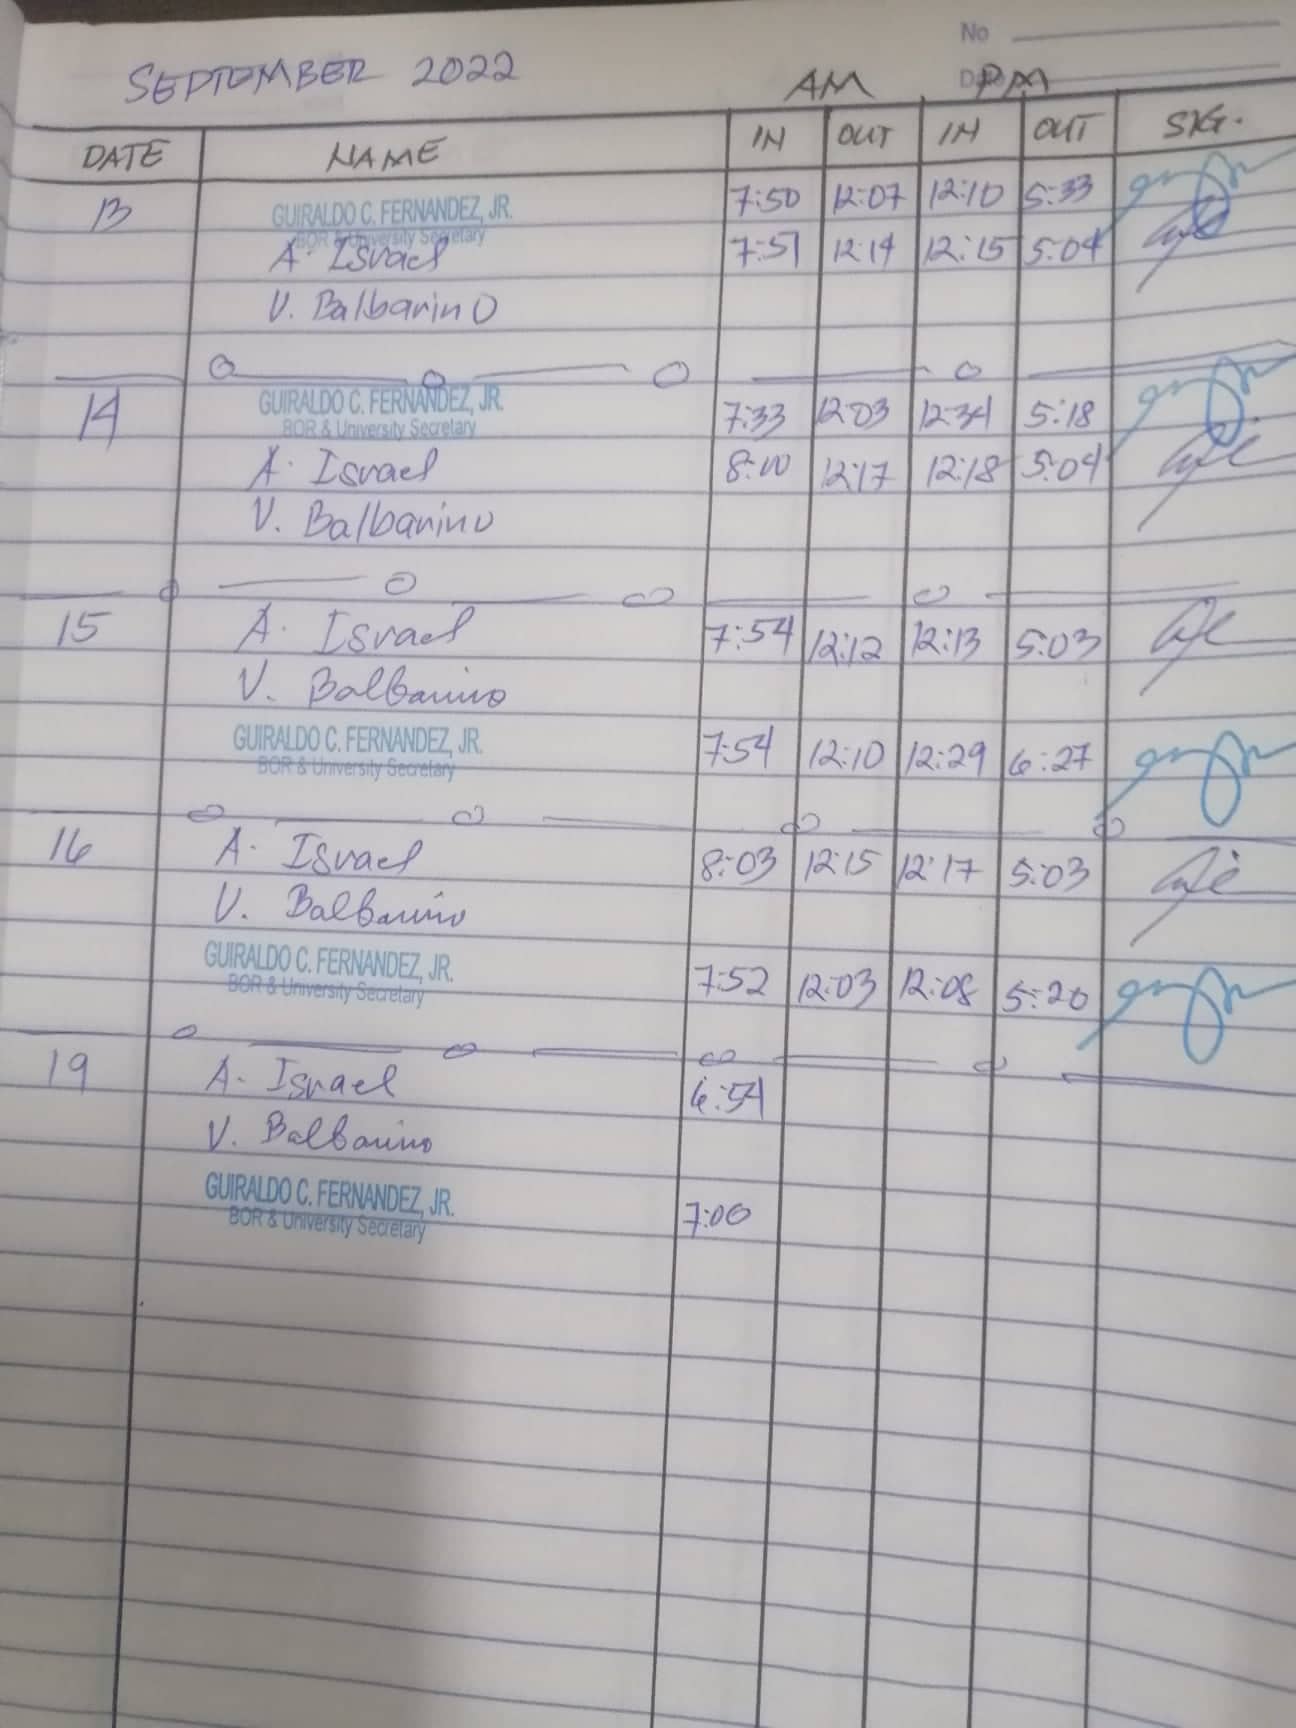 No
SEPTEMBER 2022 AM PM
DATE NAME IN OUT IN OUT SIG.
13 GUIRALDO C. FERNANDEZ, JR. 7:50 12:07 12:10 5:33
BOR & University Secretary
A. Israel 7:51 12:14 12:15 5:04
V. Balbarino
14 GUIRALDO C. FERNANDEZ, JR. 7:33 12:03 12:34 5:18
BOR & University Secretary
A. Israel 8:00 12:17 12:18 5:04
V. Balbarino
15 A. Israel 7:54 12:12 12:13 5:03
V. Balbarino
GUIRALDO C. FERNANDEZ, JR. 7:54 12:10 12:29 6:27
BOR & University Secretary
16 A. Israel 8:03 12:15 12:17 5:03
V. Balbarino
GUIRALDO C. FERNANDEZ, JR. 7:52 12:03 12:08 5:20
BOR & University Secretary
19 A. Israel 6:54
V. Balbarino
GUIRALDO C. FERNANDEZ, JR. 7:00
BOR & University Secretary